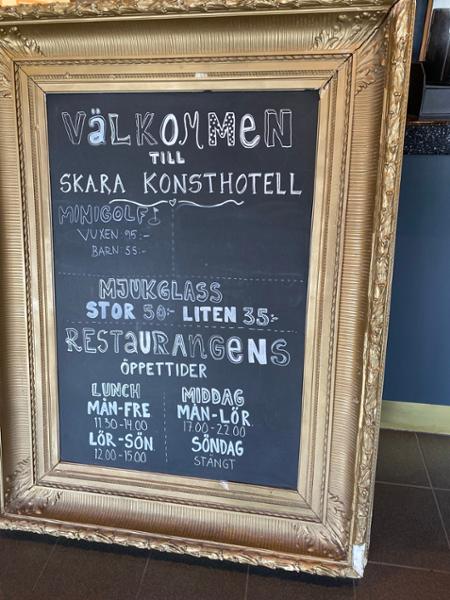 VÄLKOMMEN
TILL
SKARA KONSTHOTELL
MINIGOLF
VUXEN 95:-
BARN: 55:-
MJUKGLASS
STOR 50:- LITEN 35:-
RESTAURANGENS
ÖPPETTIDER
LUNCH
MÅN-FRE
11.30-14.00
LÖR-SÖN
12.00-15.00
MIDDAG
MÅN-LÖR
17.00-22.00
SÖNDAG
STÄNGT